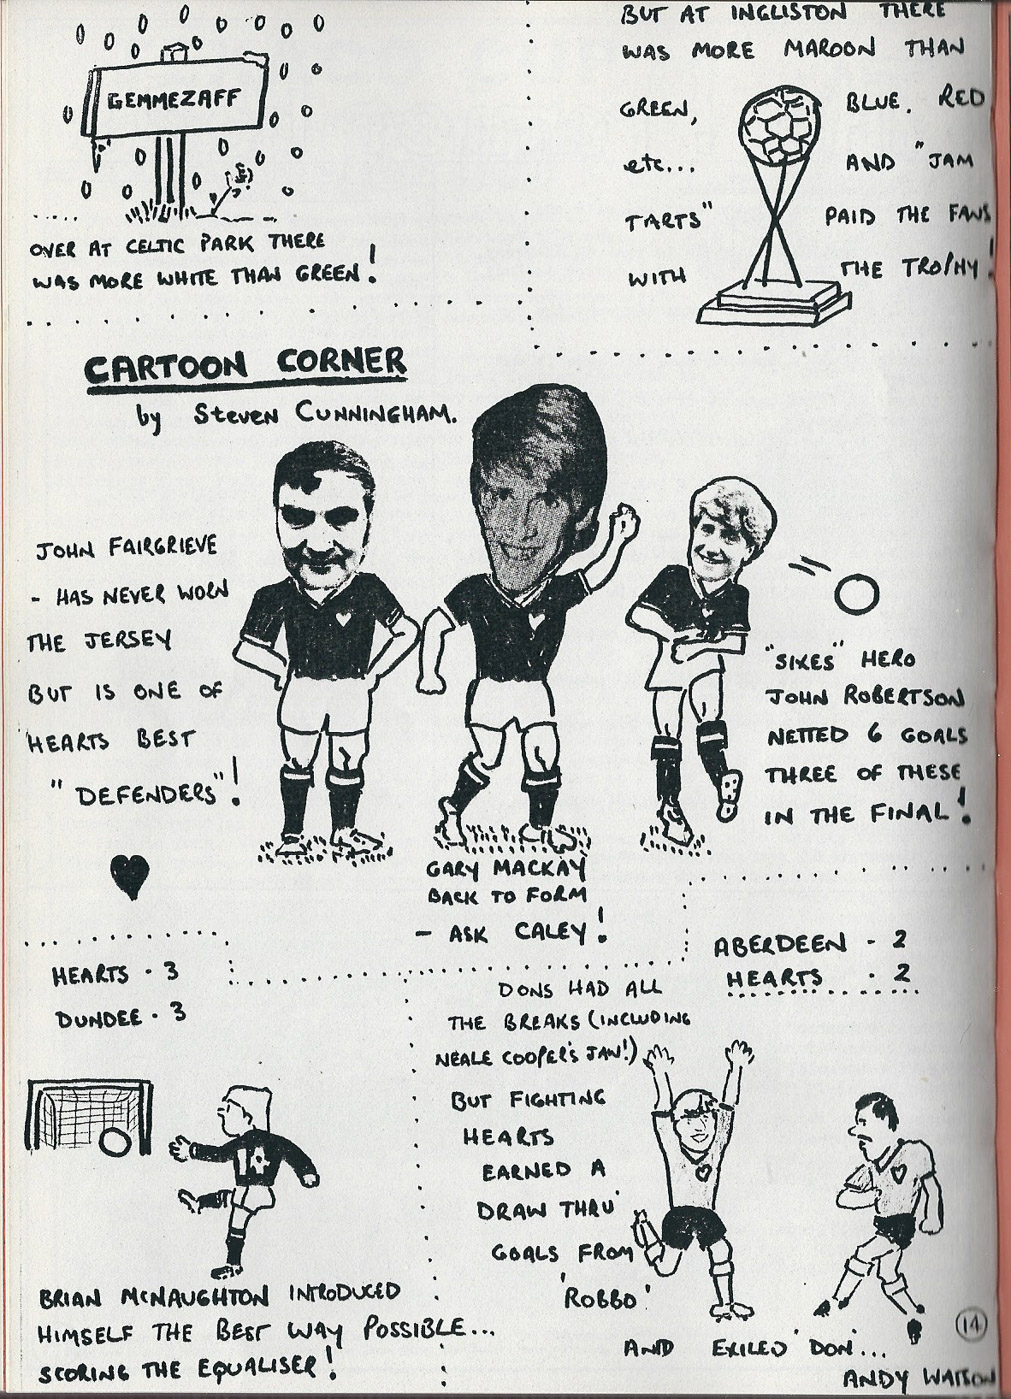 GEMMEZAFF
OVER AT CELTIC PARK THERE
WAS MORE WHITE THAN GREEN!
BUT AT INGLISTON THERE
WAS MORE MAROON THAN
GREEN, BLUE, RED
etc... AND "JAM
TARTS" PAID THE FANS
WITH THE TROPHY!
CARTOON CORNER
by Steven CUNNINGHAM.
JOHN FAIRGRIEVE
- HAS NEVER WORN
THE JERSEY
BUT IS ONE OF
HEARTS BEST
"DEFENDERS"!
GARY MACKAY
BACK TO FORM
- ASK CALEY!
"SIXES" HERO
JOHN ROBERTSON
NETTED 6 GOALS
THREE OF THESE
IN THE FINAL!
HEARTS - 3
DUNDEE - 3
BRIAN McNAUGHTON INTRODUCED
HIMSELF THE BEST WAY POSSIBLE...
SCORING THE EQUALISER!
ABERDEEN - 2
HEARTS - 2
DONS HAD ALL
THE BREAKS (INCLUDING
NEALE COOPER'S JAW!)
BUT FIGHTING
HEARTS
EARNED A
DRAW THRU'
GOALS FROM
'ROBBO'
AND EXILED 'DON'...
ANDY WATSON
14